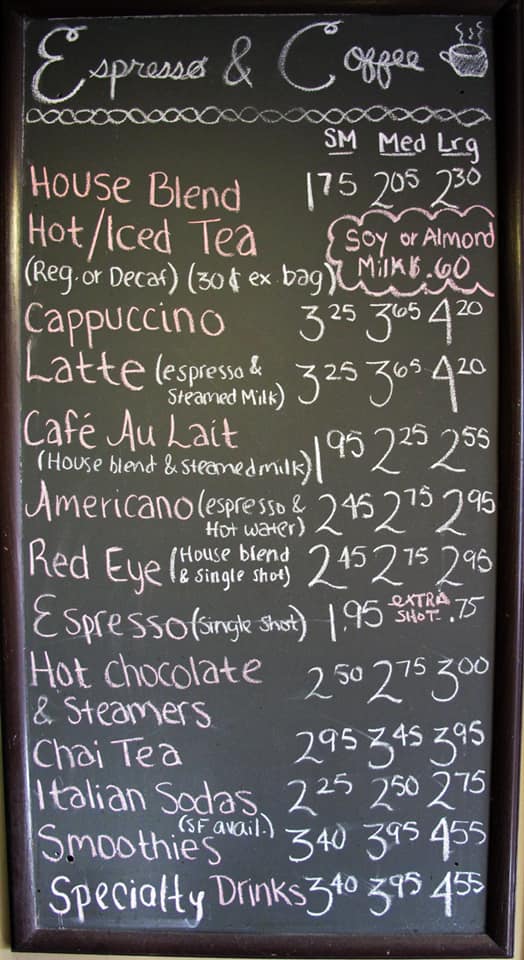 Espresso & Coffee
SM Med Lrg
House Blend 1 75 2 05 2 30
Hot/Iced Tea
Soy or Almond
Milk $.60
(Reg. or Decaf) (30¢ ex. bag)
Cappuccino 3 25 3 65 4 20
Latte (espresso & 3 25 3 65 4 20
Steamed Milk)
Café Au Lait 1 95 2 25 2 55
(House blend & steamed milk)
Americano (espresso & 2 45 2 75 2 95
Hot water)
Red Eye (House blend 2 45 2 75 2 95
& single shot)
Espresso (single shot) 1.95 extra shot .75
Hot chocolate 2 50 2 75 3 00
& Steamers
Chai Tea 2 95 3 45 3 95
Italian Sodas 2 25 2 50 2 75
(SF avail.)
Smoothies 3 40 3 95 4 55
Specialty Drinks 3 40 3 95 4 55